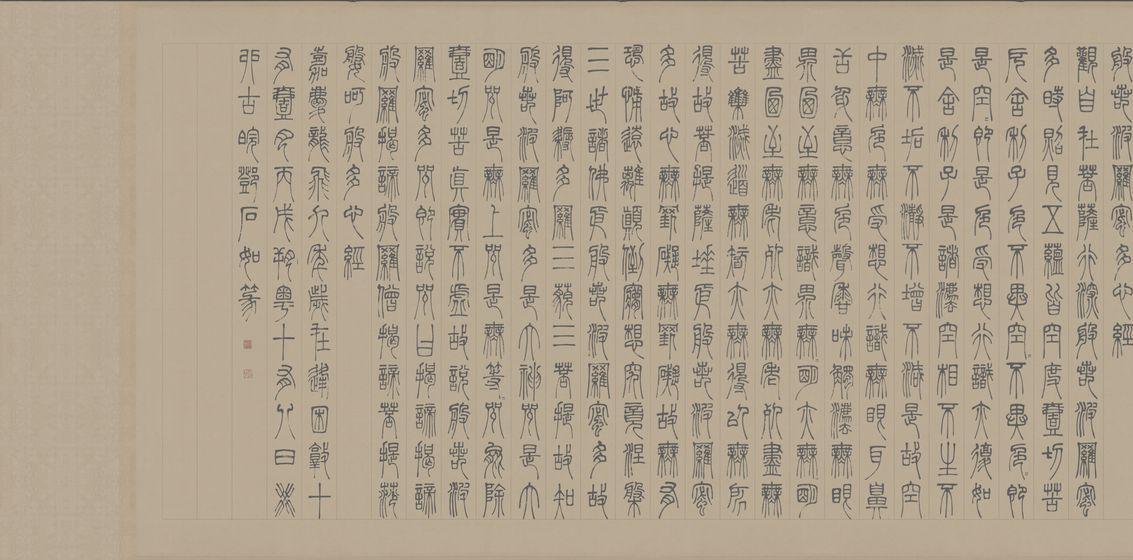 般若波羅密多心經
觀自在菩薩行深般若波羅密
多時照見五蘊皆空度壹切苦
厄舍利子色不異空〻不異色〻即
是空〻即是色受想行識亦復如
是舍利子是諸灋空相不生不
滅不垢不瀞不增不減是故空
中無色無受想行識無眼耳鼻
舌身意無色聲香味觸灋無眼
界乃至無意識界無〻明亦無〻明
盡乃至無老死亦無老死盡無
苦集滅道無智亦無得以無所
得故菩提薩埵依般若波羅密
多故心無罣礙無罣礙故無有
恐怖遠離顛倒夢想究竟涅槃
三世諸佛依般若波羅密多故
得阿耨多羅三藐三菩提故知
般若波羅密多是大神咒是大
明咒是無上咒是無等〻咒能除
壹切苦真實不虛故說般若波
羅密多咒即說咒曰揭諦揭諦
般羅揭諦般羅僧揭諦菩提莎
婆呵般多心經
嘉慶龍飛九年歲在逢困敦十
有壹月丙戌朔粵十有八日癸
卯古皖鄧石如篆